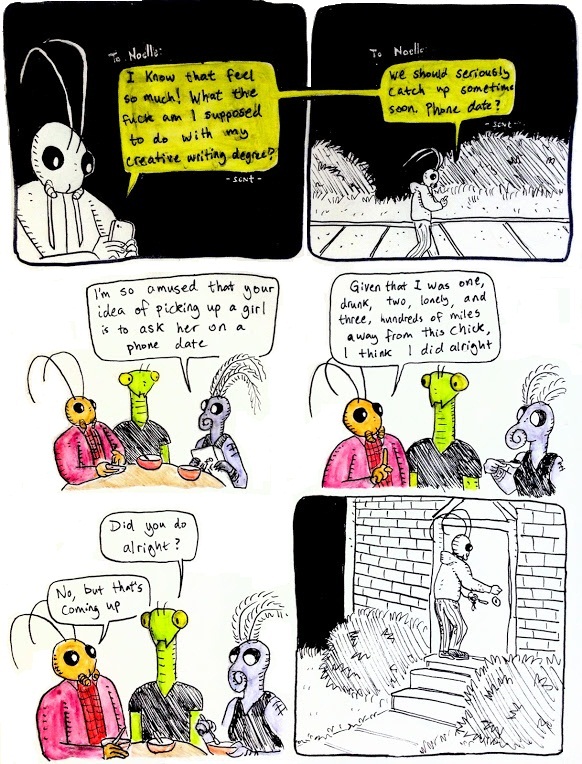 To: Noelle
I know that feel
so much! What the
fuck am I supposed
to do with my
creative writing degree?
- sent -
To: Noelle
We should seriously
catch up sometime
soon. Phone date?
- sent -
I'm so amused that your
idea of picking up a girl
is to ask her on a
phone date
Given that I was one,
drunk, two, lonely, and
three, hundreds of miles
away from this chick,
I think I did alright
Did you do
alright?
No, but that's
coming up